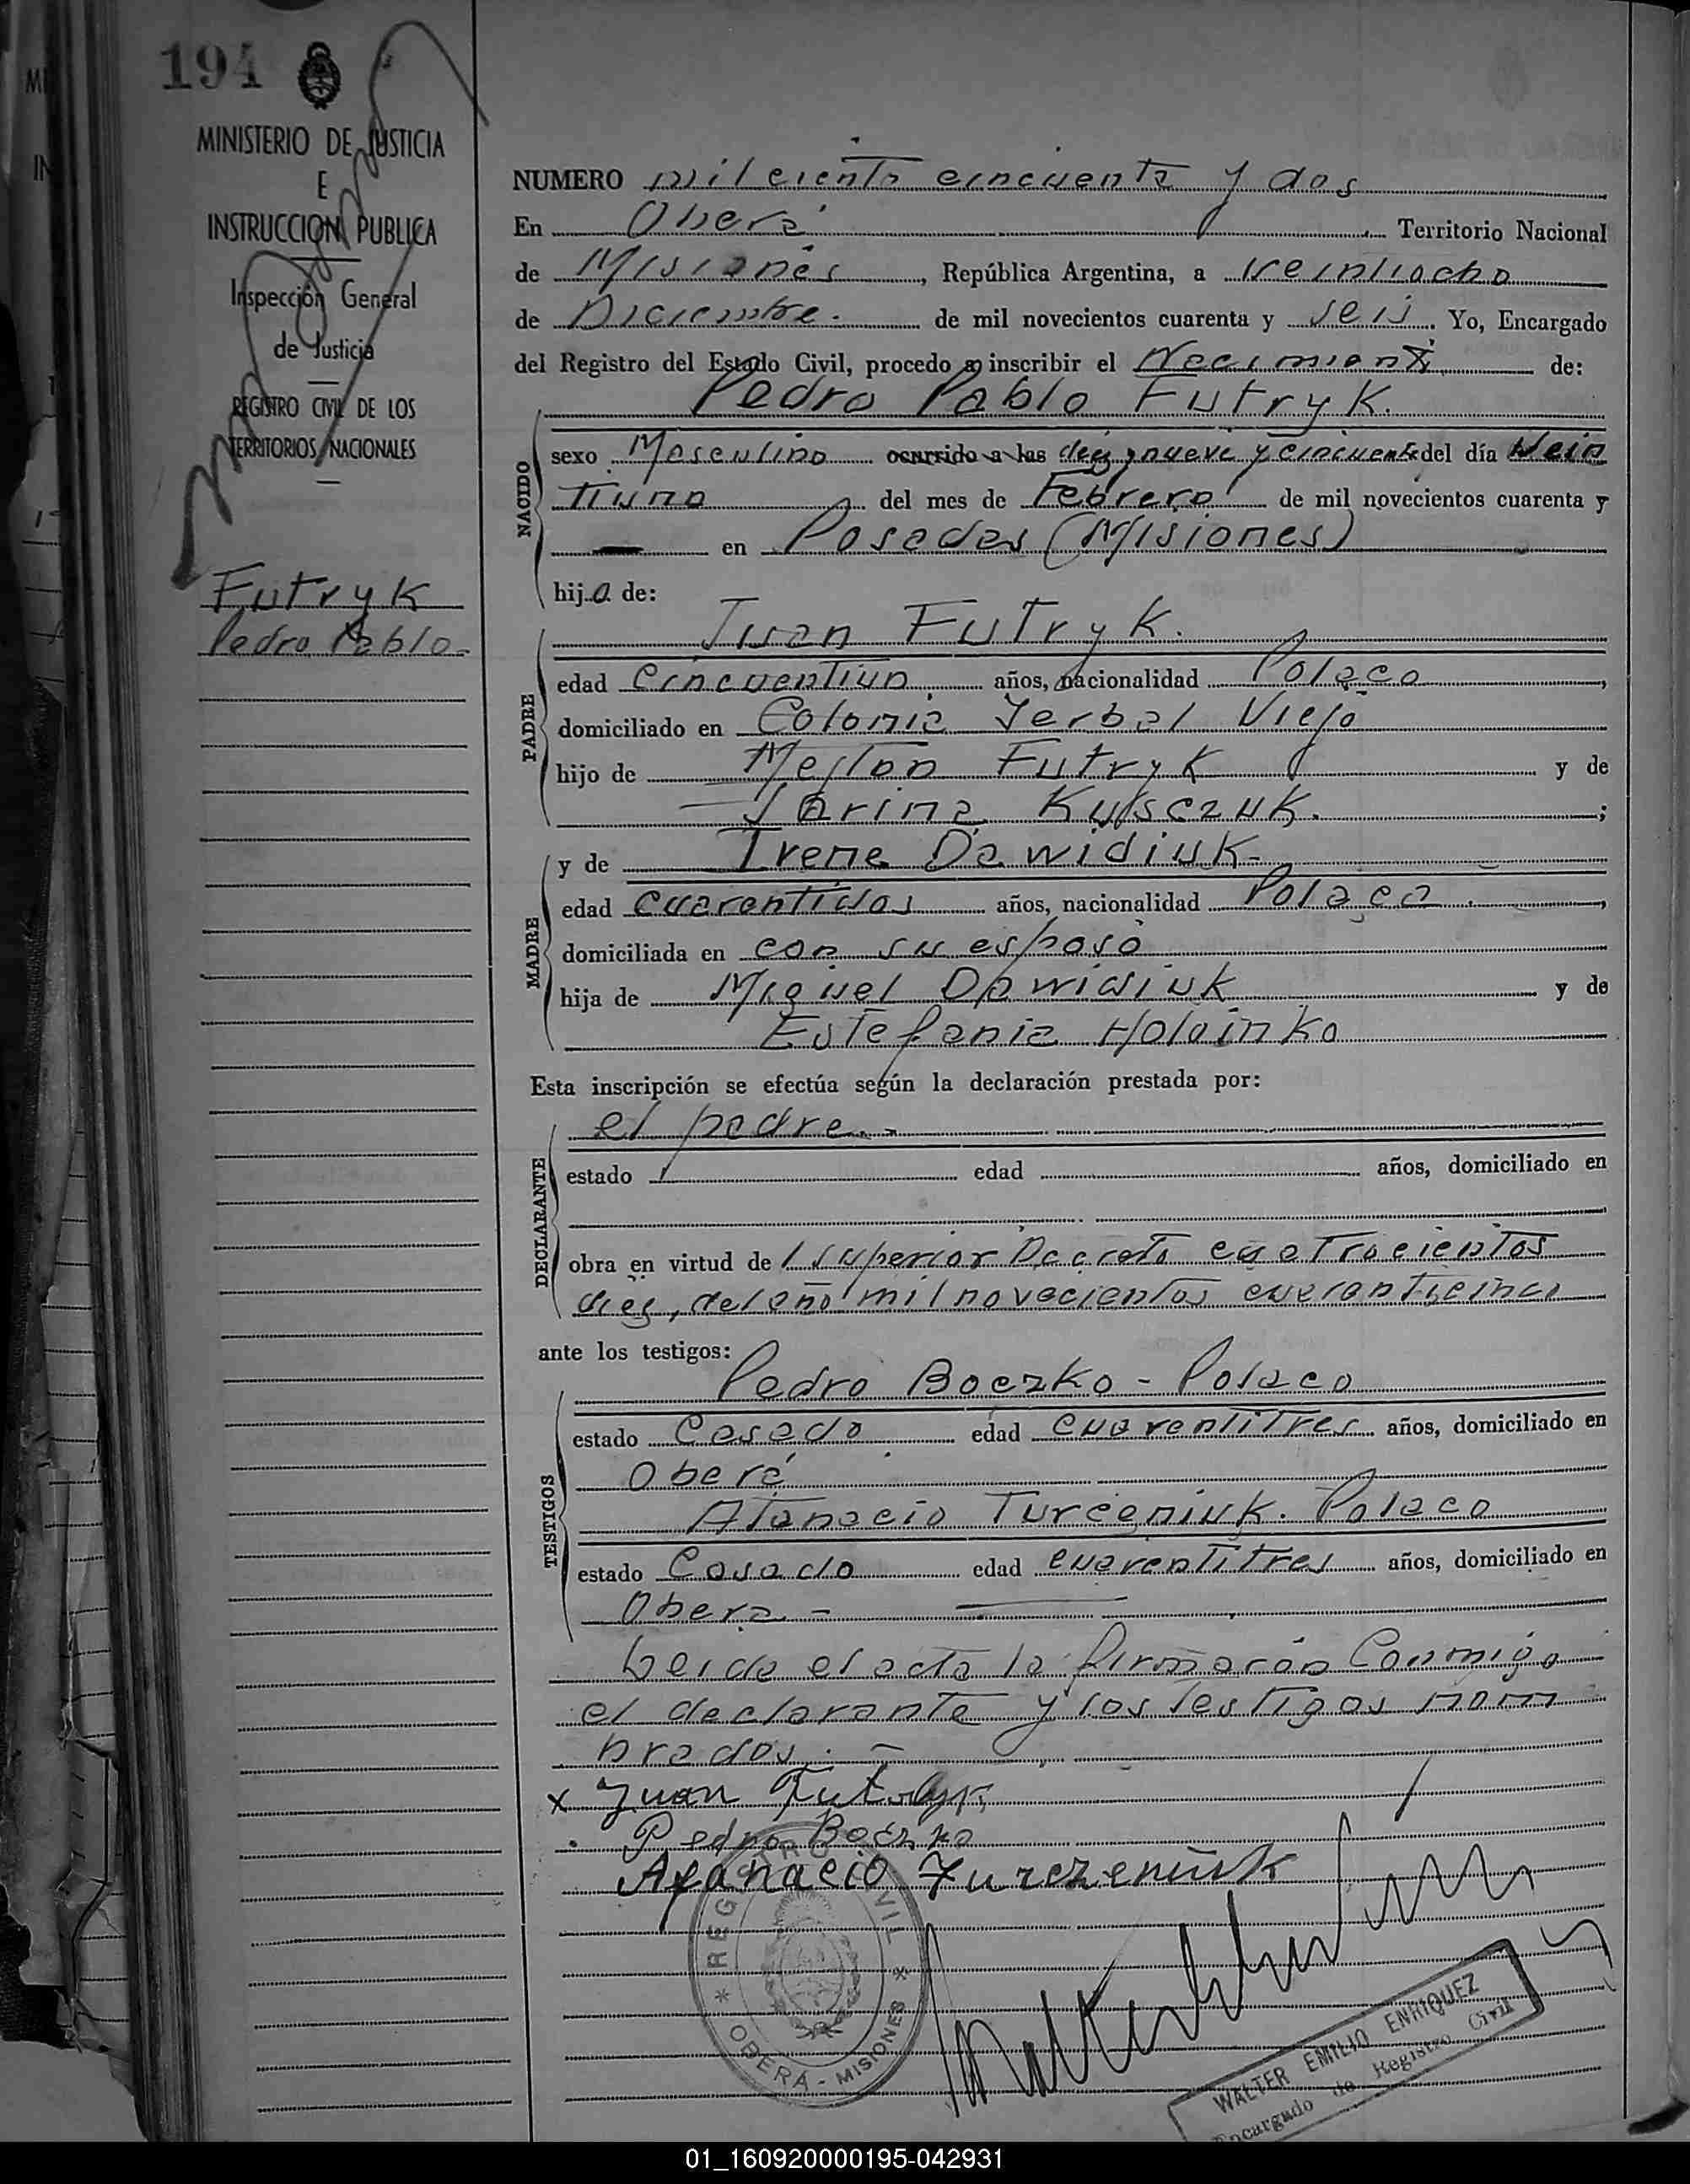 194
MINISTERIO DE JUSTICIA
E
INSTRUCCION PUBLICA
Inspección General
de Justicia
REGISTRO CIVIL DE LOS
TERRITORIOS NACIONALES
Futryk
Pedro Pablo.-
NUMERO mil ciento cincuenta y dos
En Oberá Territorio Nacional
de Misiones, República Argentina, a veintiocho
de Diciembre. de mil novecientos cuarenta y seis. Yo, Encargado
del Registro del Estado Civil, procedo a inscribir el Nacimiento de:
Pedro Pablo Futryk.
NACIDO
sexo Masculino ocurrido a las diez y nueve y cincuenta del día Vein
tiuno del mes de Febrero de mil novecientos cuarenta y
— en Posadas (Misiones)
hijo de:
PADRE
Juan Futryk.
edad Cincuentiun años, nacionalidad Polaco,
domiciliado en Colonia Yerbal Viejo
hijo de Futryk y de
;
MADRE
y de Irene Dawidiuk-
edad cuarentidos años, nacionalidad Polaca,
domiciliada en con su esposo
hija de Miguel Dawidiuk y de
Estefania
Esta inscripción se efectúa según la declaración prestada por:
DECLARANTE
el padre.-
estado edad años, domiciliado en
obra en virtud del Superior Decreto cuatrocientos
diez, del año mil novecientos cuarenticinco
ante los testigos:
TESTIGOS
Pedro Boczko - Polaco
estado Casado edad cuarentitres años, domiciliado en
Oberá
Atanacio Turceniuk. Polaco
estado Casado edad cuarentitres años, domiciliado en
Obera -
Leida el acta la firmarón Conmigo
el declarante y los testigos nom
brados. -
x Juan Futryk
Pedro Boczko
Afanacio Turczeniuk
REGISTRO CIVIL * OBERÁ - MISIONES *
WALTER EMILIO ENRIQUEZ
Encargado de Registro Civil
01_160920000195-042931